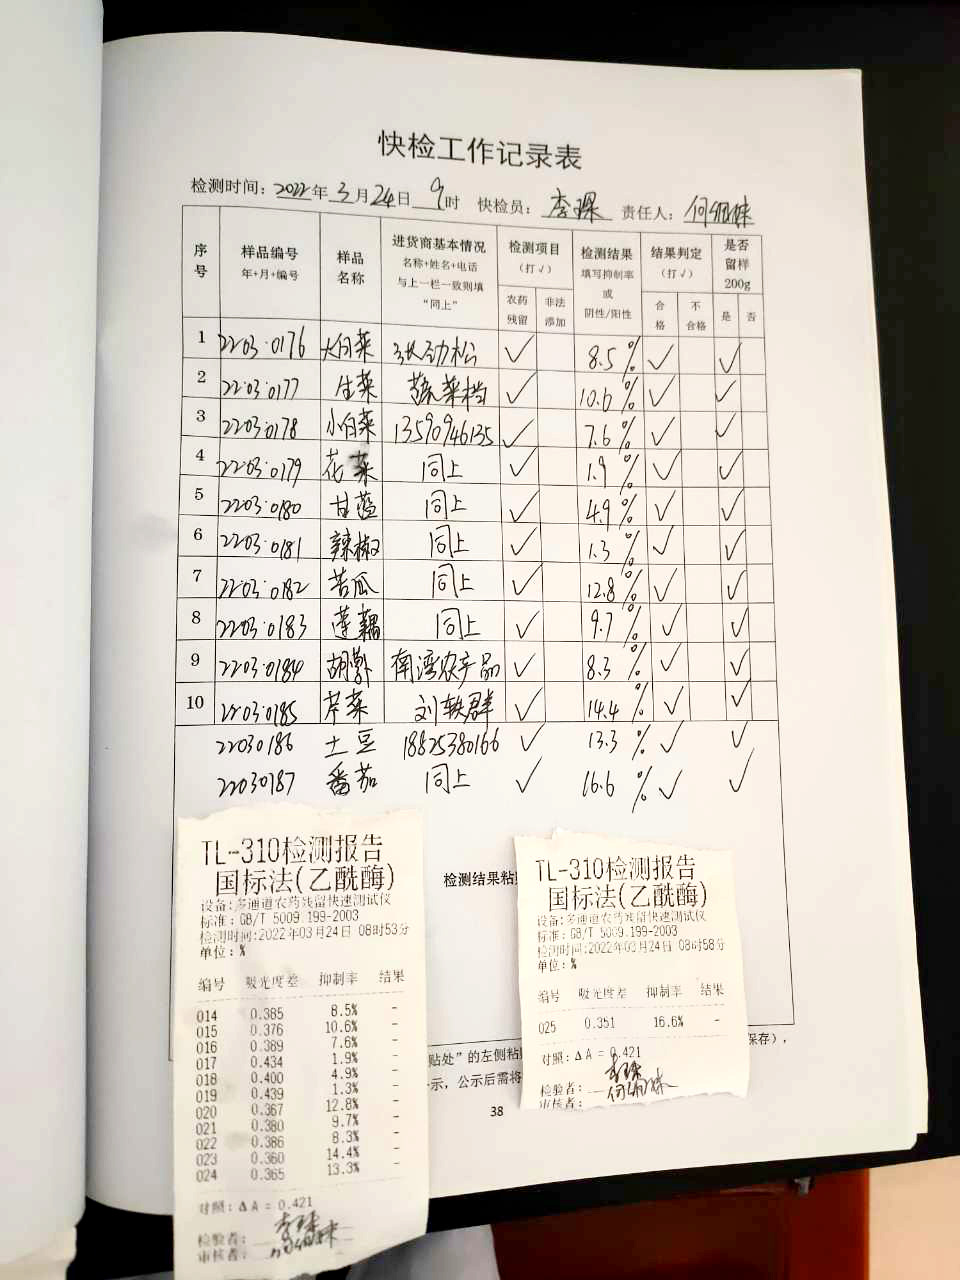 快检工作记录表
检测时间：2022年3月24日 9时 快检员：李琛 责任人：
序号 样品编号 年+月+编号 样品名称 进货商基本情况 名称+姓名+电话 与上一栏一致则填 “同上” 检测项目 （打√） 检测结果 填写抑制率 或 阴性/阳性 结果判定 （打√） 是否留样 200g
农药残留 非法添加 合格 不合格 是 否
1 2203·0176 大白菜 张劲松 √ 8.5% √ √
2 2203·0177 生菜 蔬菜档 √ 10.6% √ √
3 2203·0178 小白菜 13590946135 √ 7.6% √ √
4 2203·0179 花菜 同上 √ 1.9% √ √
5 2203·0180 甘蓝 同上 √ 4.9% √ √
6 2203·0181 辣椒 同上 √ 1.3% √ √
7 2203·0182 苦瓜 同上 √ 12.8% √ √
8 2203·0183 莲藕 同上 √ 9.7% √ √
9 2203·0184 胡萝卜 南湾农产品 √ 8.3% √ √
10 2203·0185 芹菜 刘轶群 √ 14.4% √ √
22030186 土豆 18825380166 √ 13.3% √ √
22030187 番茄 同上 √ 16.6% √ √
检测结果粘贴
TL-310检测报告
国标法(乙酰酶)
设备:多通道农药残留快速测试仪
标准：GB/T 5009.199-2003
检测时间:2022年03月24日 08时53分
单位：%
编号 吸光度差 抑制率 结果
014 0.385 8.5% -
015 0.376 10.6% -
016 0.389 7.6% -
017 0.434 1.9% -
018 0.400 4.9% -
019 0.439 1.3% -
020 0.367 12.8% -
021 0.380 9.7% -
022 0.386 8.3% -
023 0.360 14.4% -
024 0.365 13.3% -
对照：ΔA = 0.421
检验者：李琛
审核者：
TL-310检测报告
国标法(乙酰酶)
设备:多通道农药残留快速测试仪
标准：GB/T 5009.199-2003
检测时间:2022年03月24日 08时58分
单位：%
编号 吸光度差 抑制率 结果
025 0.351 16.6% -
对照：ΔA = 0.421
检验者：李琛
审核者：
贴处”的左侧粘贴
保存），
示，公示后需将
38